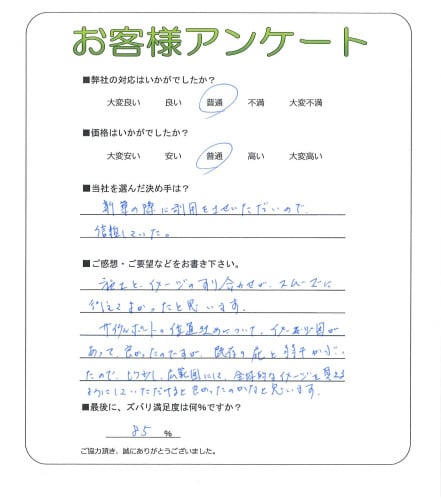 お客様アンケート
■弊社の対応はいかがでしたか？
大変良い 良い 普通 不満 大変不満
■価格はいかがでしたか？
大変安い 安い 普通 高い 大変高い
■当社を選んだ決め手は？
新築の際に利用をさせいただいので、
信頼していた。
■ご感想・ご要望などをお書き下さい。
施主と、イメージのすり合わせが、スムーズに
行えてよかったと思います。
サイクルポートの位置 について、イメージ図が
あって、良かったのですが、既存の
たので、もう少し、広範囲にして、全体的なイメージを見える
ようにしていただけると良かったのかなと思います。
■最後に、ズバリ満足度は何%ですか？
85 %
ご協力頂き、誠にありがとうございました。